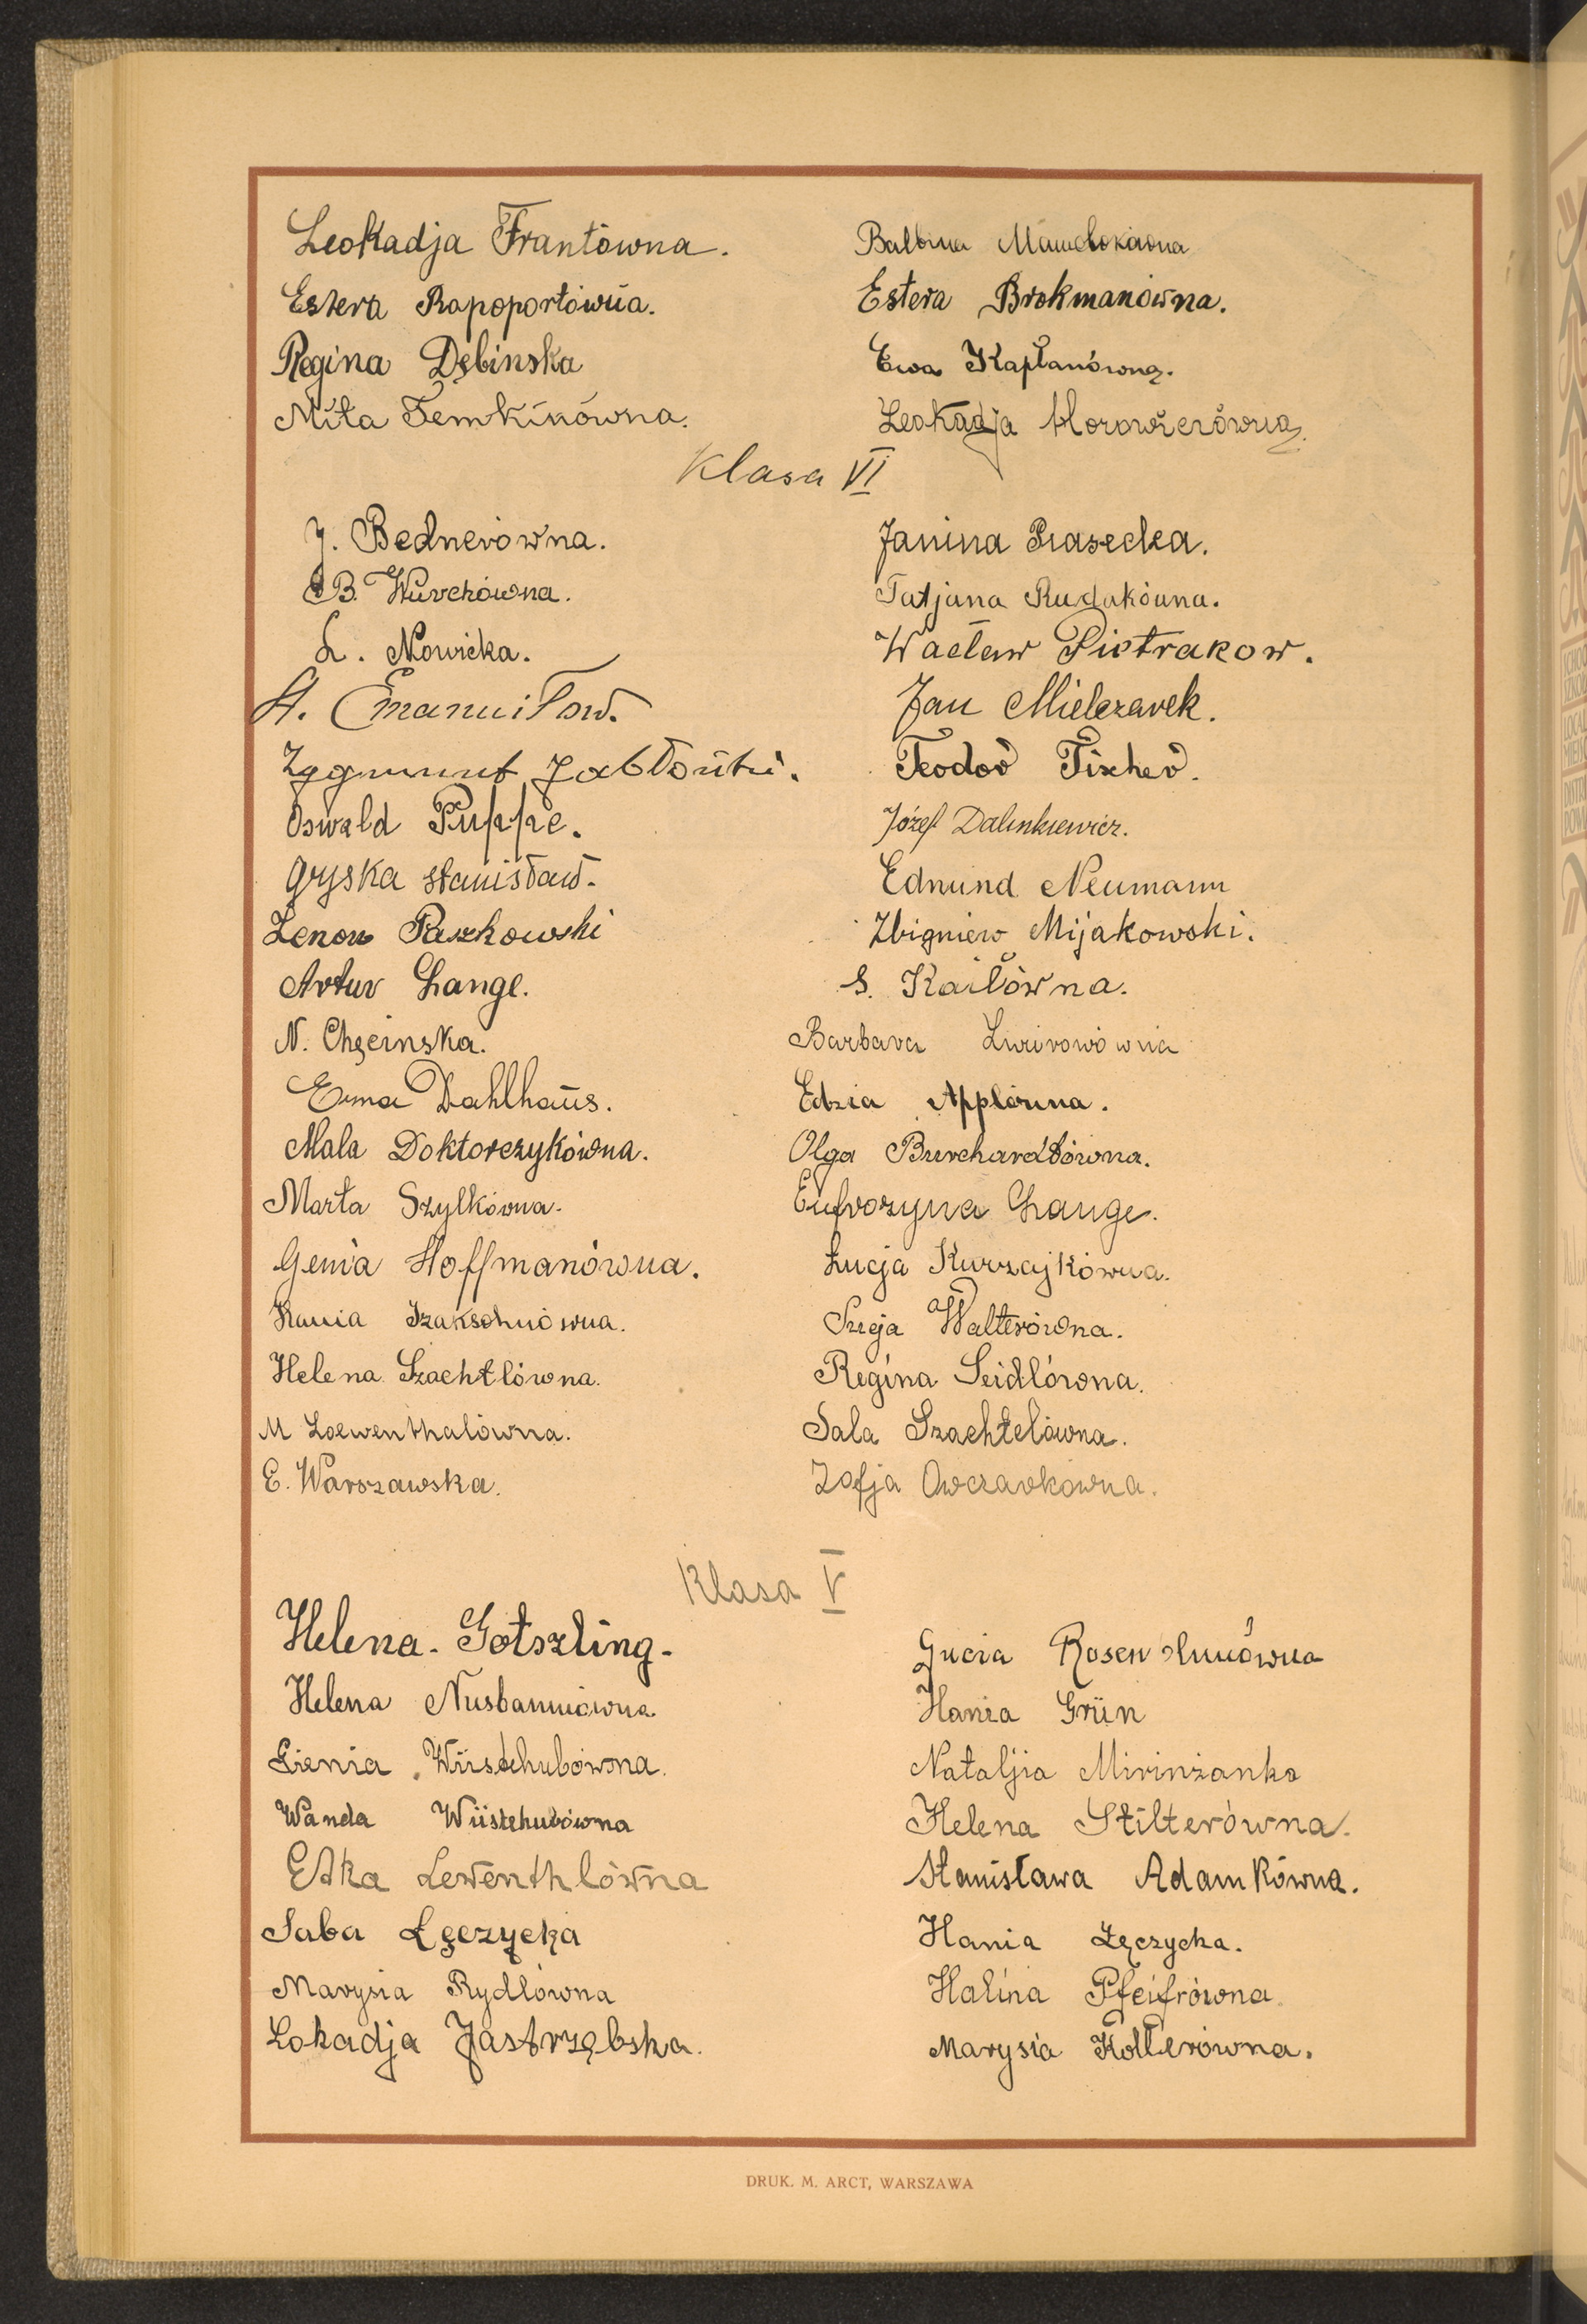 Leokadja Frantówna.
Estera Rapoportówna.
Regina Dębinska
Miła Temkinówna.
Balbina
Estera Brokmanówna.
Ewa Kapłanówna.
Leokadja
Klasa VI
J. Bednerówna.
B. Wurckówna.
L. Nowicka.
A. Emanuiłow.
Zygmunt Jabłoński.
Oswald Puppe.
Gryska Stanisław.
Zenon Paszkowski
Artur Lange.
N. Chęcinska.
Erna Dahlhaus.
Mala Doktorczykówna.
Marta Szylkówna.
Genia Hoffmanówna.
Hania Izaksohnówna.
Helena Szachtlówna.
M Loewenthalówna.
E. Warszawska.
Janina Prasecka.
Tatjana Rudakówna.
Wacław Pietrakow.
Jan Mielczarek.
Teodor Fischer.
Józef Dalinkiewicz.
Edmund Neumann
Zbigniew Mijakowski.
S. Kailówna.
Barbara
Edzia Applówna.
Olga Burchardtówna.
Eufrozyna Lange.
Łucja Kurzajkówna.
Walterówna.
Regina Seidlówna.
Sala Szachtelówna.
Zofja Owczarkówna.
Klasa V
Helena Gotszling.
Helena Nusbaumówna.
Gienia Wüstehubówna.
Wanda Wüstehubówna
Etka Lewenthlówna
Saba Łęczycka
Marysia Rydlówna
Lokadja Jastrzębska.
Gucia
Hania Grün
Nataljia Mirinżanka
Helena Stilterówna.
Stanisława Adamkówna.
Hania Łęczycka.
Halina Pfeifrówna.
Marysia Kollerówna.
DRUK. M. ARCT, WARSZAWA